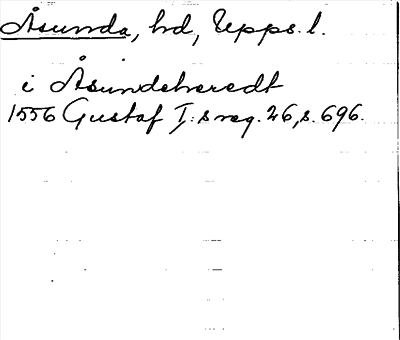 Åsunda, hd, Upps. l.
i Åsundeheredt
1556 Gustaf I:s reg. 26, s. 696.